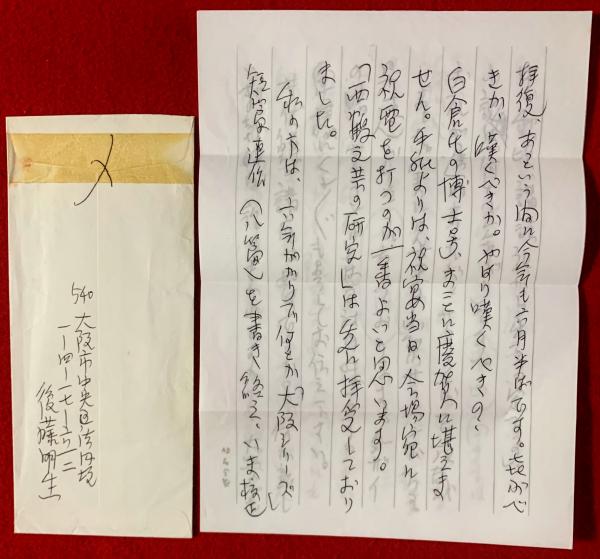 拝復、あっという間に今年も六月半ばです。喜ぶべ
きか、嘆くべきか。やはり嘆くべきの、
白倉氏の博士号、まことに慶賀に堪えま
せん。手紙よりは、祝宴当日、会場宛に
祝電を打つのが一番よいと思います。
「西鶴文芸の研究」は先に拝受しており
ました。
私の方は、六年がかりで何とか"大阪シリーズ"
短篇連作(八篇)を書き終え、いま校正
540 大阪市中央区法円坂
一ー四ー一七ー六一二
後藤明生